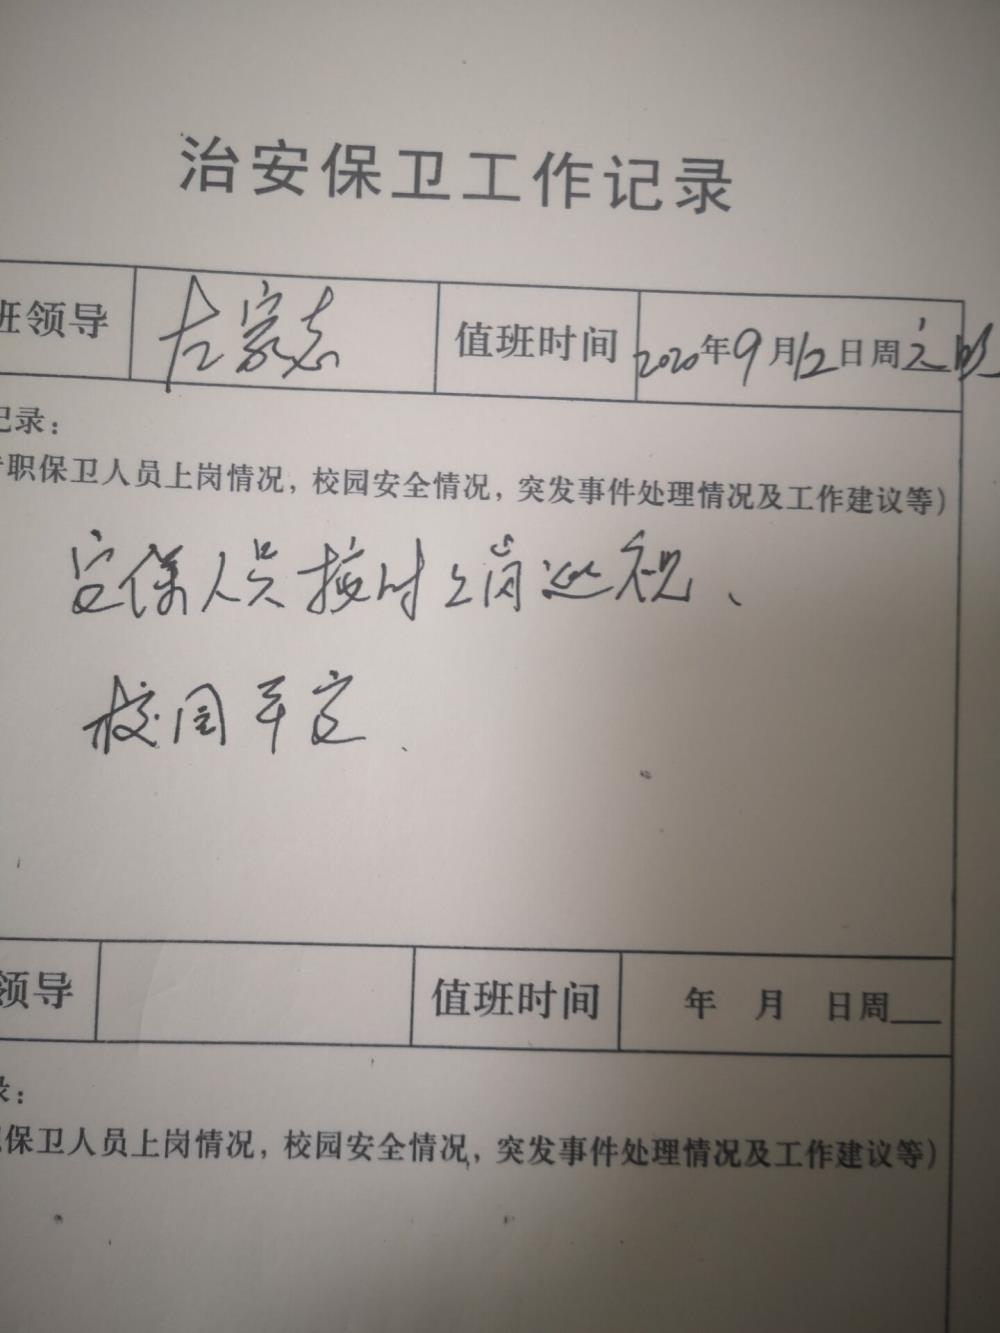 治安保卫工作记录
班领导 左家志 值班时间 2020年9月12日周六
记录：
专职保卫人员上岗情况，校园安全情况，突发事件处理情况及工作建议等）
安保人员按时上岗巡视、
校园平安.
领导 值班时间 年 月 日周
录：
职保卫人员上岗情况，校园安全情况，突发事件处理情况及工作建议等）